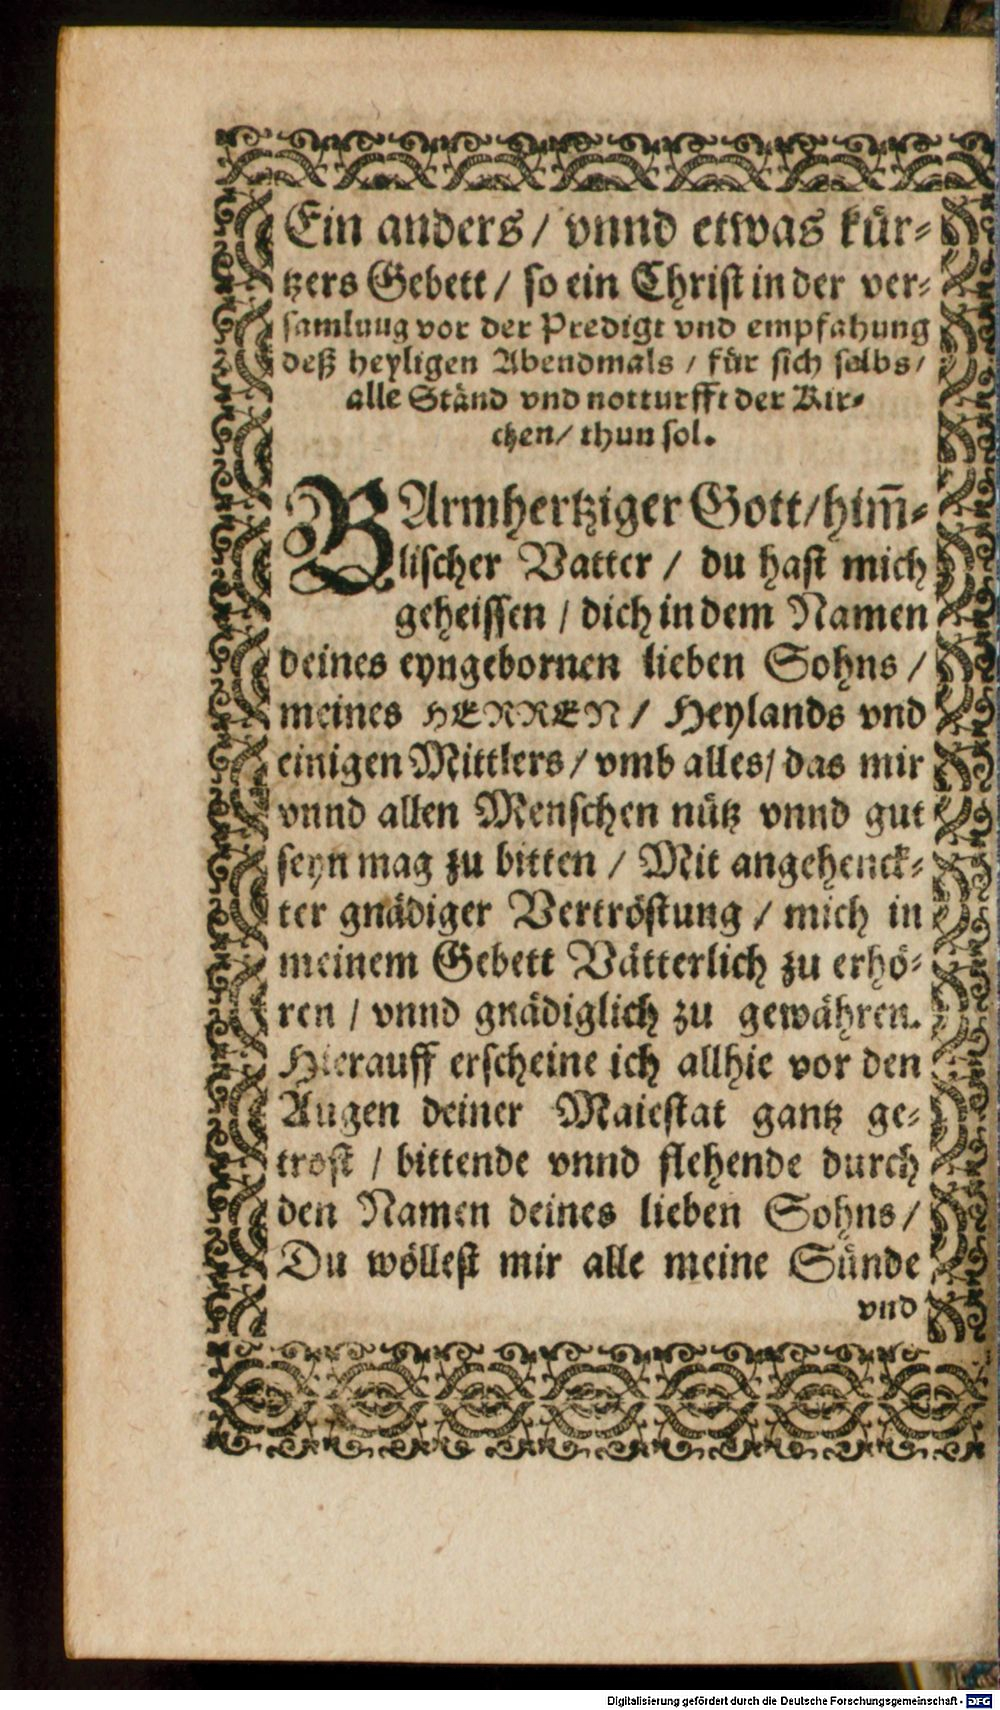 Ein anders / vnnd etwas kür-
tzers Gebett / so ein Christ in der ver-
samlung vor der Predigt vnd empfahung
deß heyligen Abendmals / für sich selbs /
alle Ständ vnd notturfft der Kir-
chen / thun sol.
BArmhertziger Gott / him̃-
lischer Vatter / du hast mich
geheissen / dich in dem Namen
deines eyngebornen lieben Sohns /
meines HERREN / Heylands vnd
einigen Mittlers / vmb alles / das mir
vnnd allen Menschen nütz vnnd gut
seyn mag zu bitten / Mit angehenck-
ter gnädiger Vertröstung / mich in
meinem Gebett Vätterlich zu erhö-
ren / vnnd gnädiglich zu gewähren.
Hierauff erscheine ich allhie vor den
Augen deiner Maiestat gantz ge-
trost / bittende vnnd flehende durch
den Namen deines lieben Sohns /
Du wöllest mir alle meine Sünde
vnd
Digitalisierung gefördert durch die Deutsche Forschungsgemeinschaft - DFG